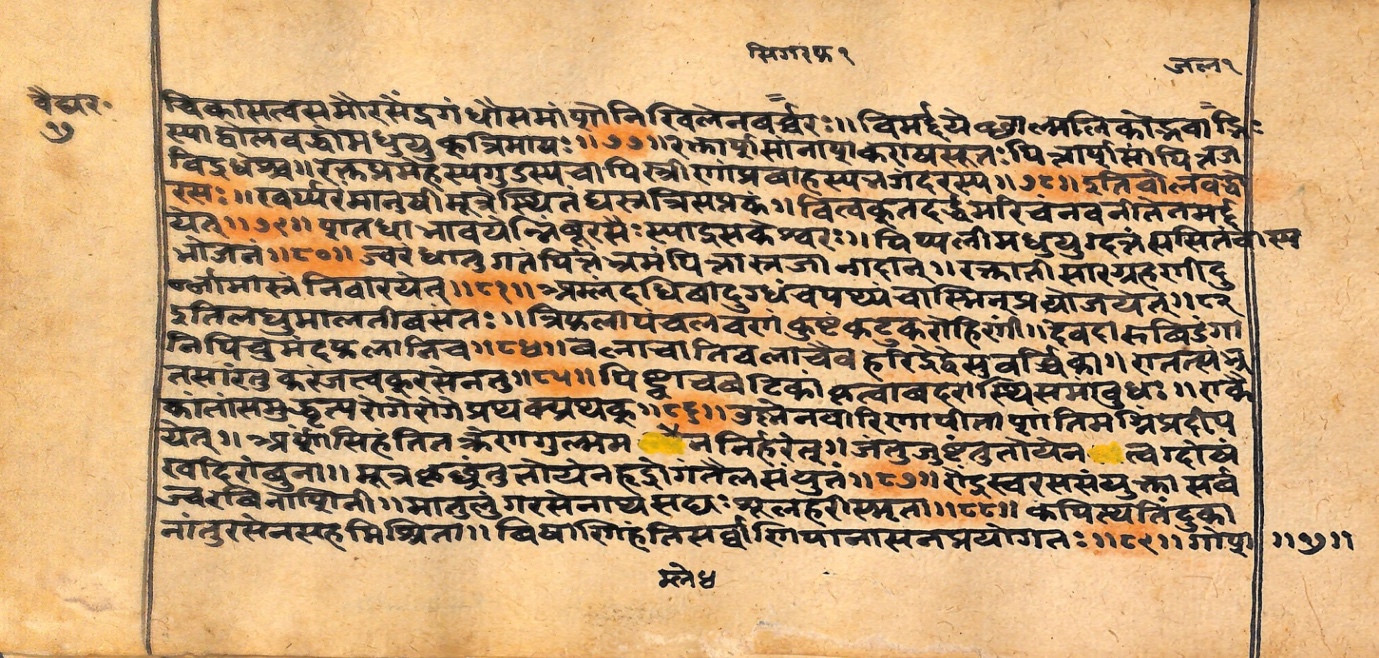 सिगरफ १
जल १
वैद्यर॰
१७
त्रिकासत्वसमौरसैंद्रगंधौसमांशौनिखिलेनवर्वरः॥ विमर्द्दये
स्याद्वोलवद्धोमधुयुक्त्रिमाषः॥ ७७॥ रक्तार्शसांनाशकरोयसूतः पित्तार्शसांपित्तज
विद्रधेश्च॥ रक्तप्रमेहस्यगुडस्यचापिस्त्रीरोगांप्रवाहस्य भगंदरस्य॥ ७८॥ इतिवोलवद्धो
रसः॥ खर्प्परंमानुषीमूत्रेस्थितंघस्रत्रिसप्तकं॥ वित्वकृतदर्द्धमरिचंनवनीतेतमर्द्द
येत्॥ ७९॥ शतधाभावयेन्निंबूरसैः स्याद्रसकेश्वरः॥ पिप्पलीमधुयुग्दत्तंससितं
भोजनं॥ ८०॥ ज्वरंधातुगतंपित्तंभ्रमंपित्तास्रजान्गदान्॥ रक्तातीसारग्रहणीदु
र्न्नामास्रंनिवारयेत्॥ ८१॥ अम्लंदधिवादुग्धंचपथ्यंचास्मिन्प्रयोजयेत्॥ ८२
इतिलघुमालतीवसंतः॥ त्रिफलापंचलवणंकुष्टंकटुकरोहिणी॥ देवदारुविडंगा
निपिचुमंदफलानिच॥ ८४॥ वलाचातिवलाचैव हरिद्रेद्वेसुवर्च्चिका॥ एतत्संभृ
तसांरतु करंजत्वक्रसेनतु॥ ८५॥ पिष्ट्वाचवटिकांकृत्वाबदरास्थिसमांबुधः॥ एकै
कांतांसमुद्धृत्यरोगेरोगेप्रथक्प्रथक्॥ ८६॥ उष्णेनवारिणापीता शांतिमग्निंप्रदीप
येत्॥ अर्शांसिहंतितक्रेणगुल्मम न निर्हरेत्॥ जंतुजुष्टंतुतोयेन त्वग्दोषं
खदिरांबुना॥ मूत्रकृछ्रंतुतोयेनहृद्रोगंतैलसंयुतं॥ ८७॥ इंद्रस्वरससंयुक्तासर्व
ज्वरविनाशिनी॥ मातुलुंगरसेनाथसद्यः शूलहरीस्मृता॥ ८८॥ कपित्थतिंदुका
नांतुरसेनसहमिश्रिता॥ विषाणिहंतिसर्वाणिपानासनप्रयोगतः॥ ८९॥ गोश ॥ १७॥